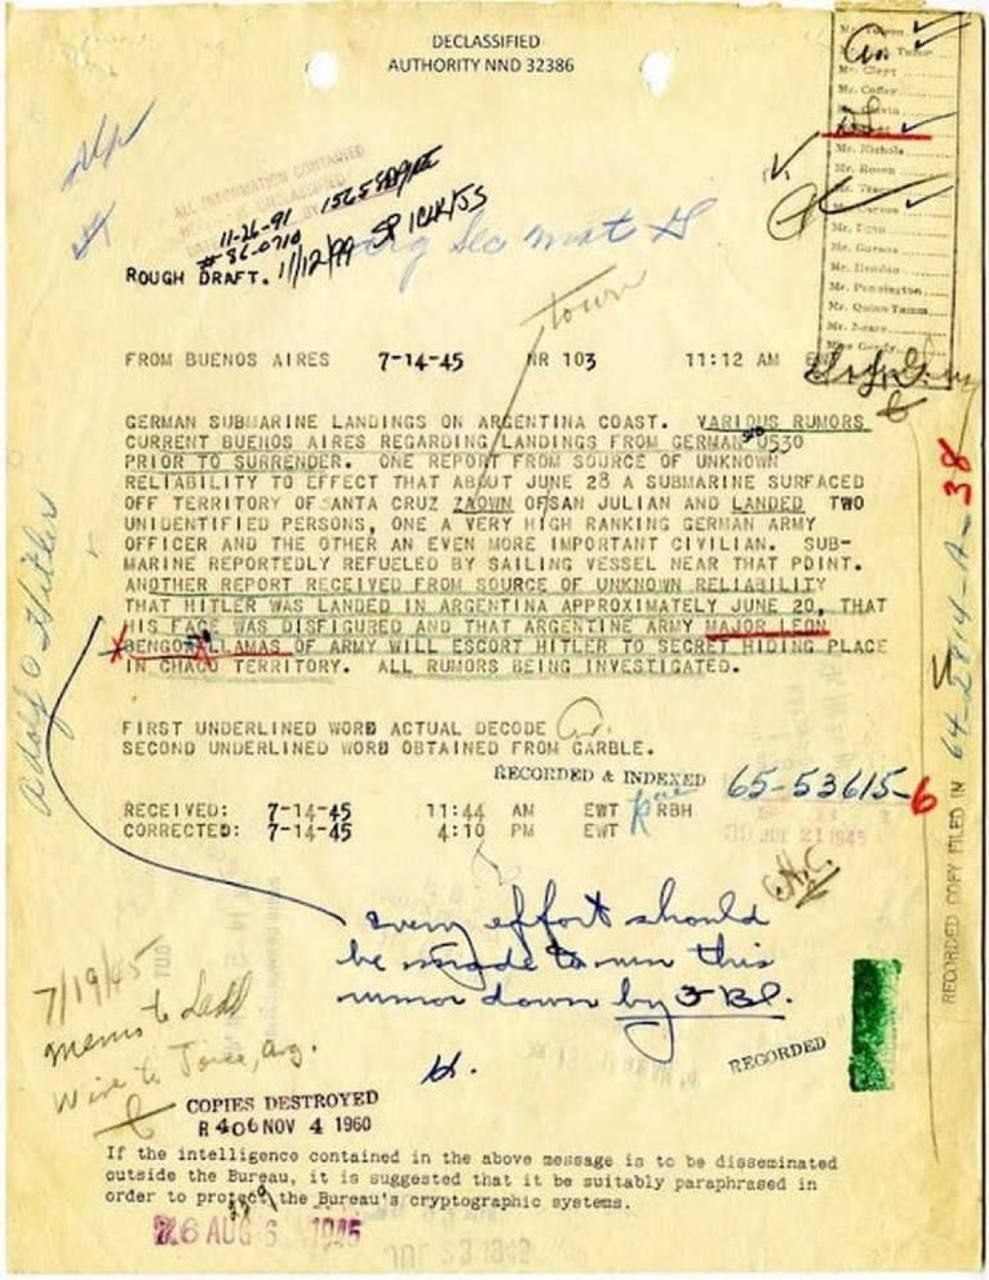 DECLASSIFIED
AUTHORITY NND 32386
Mr. Clegg
Mr. Coffey
Mr. Nichols
Mr. Rosen
Mr. Carson
Mr. Egan
Mr. Gurnea
Mr. Hendon
Mr. Pennington
Mr. Quinn Tamm
Mr. Nease
Miss Gandy
ALL INFORMATION CONTAINED
11-26-91
#86-0710
ROUGH DRAFT. 11/12/99
Town
FROM BUENOS AIRES 7-14-45 NR 103 11:12 AM
GERMAN SUBMARINE LANDINGS ON ARGENTINA COAST. VARIOUS RUMORS
CURRENT BUENOS AIRES REGARDING LANDINGS FROM GERMAN SUB U530
PRIOR TO SURRENDER. ONE REPORT FROM SOURCE OF UNKNOWN
RELIABILITY TO EFFECT THAT ABOUT JUNE 28 A SUBMARINE SURFACED
OFF TERRITORY OF SANTA CRUZ ZAOWN OF SAN JULIAN AND LANDED TWO
UNIDENTIFIED PERSONS, ONE A VERY HIGH RANKING GERMAN ARMY
OFFICER AND THE OTHER AN EVEN MORE IMPORTANT CIVILIAN. SUB-
MARINE REPORTEDLY REFUELED BY SAILING VESSEL NEAR THAT POINT.
ANOTHER REPORT RECEIVED FROM SOURCE OF UNKNOWN RELIABILITY
THAT HITLER WAS LANDED IN ARGENTINA APPROXIMATELY JUNE 20, THAT
HIS FACE WAS DISFIGURED AND THAT ARGENTINE ARMY MAJOR LEON
BENGOA LLAMAS OF ARMY WILL ESCORT HITLER TO SECRET HIDING PLACE
IN CHACO TERRITORY. ALL RUMORS BEING INVESTIGATED.
Adolf Hitler
FIRST UNDERLINED WORD ACTUAL DECODE
SECOND UNDERLINED WORD OBTAINED FROM GARBLE.
RECORDED & INDEXED 65-53615-6
RECEIVED: 7-14-45 11:44 AM EWT RBH
CORRECTED: 7-14-45 4:10 PM EWT
JUL 21 1945
RECORDED COPY FILED IN 64-2814-A-38
every effort should
be made to run this
rumor down by FBI.
H.
7/19/45
memo to Ladd
Wire to Joice, Arg.
RECORDED
COPIES DESTROYED
R 406 NOV 4 1960
If the intelligence contained in the above message is to be disseminated
outside the Bureau, it is suggested that it be suitably paraphrased in
order to protect the Bureau's cryptographic systems.
76 AUG 6 1945